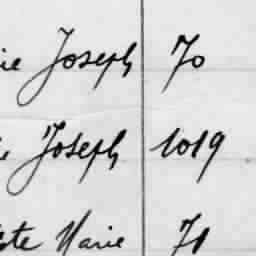 ie Joseph 70
Joseph 1019
te Marie 71